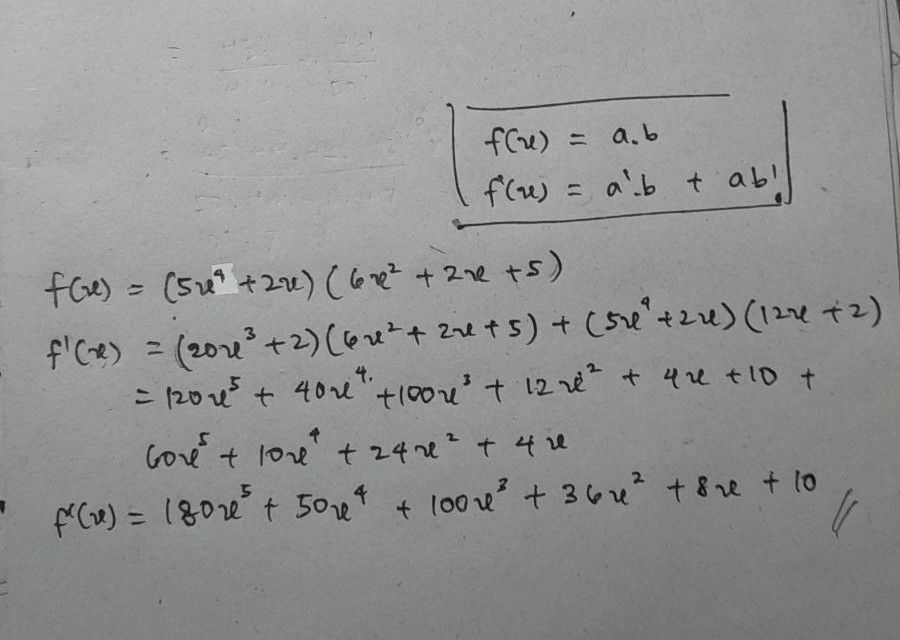 f(x) = a.b
f'(x) = a'.b + ab'
f(x) = (5x⁴ + 2x) (6x² + 2x + 5)
f'(x) = (20x³ + 2) (6x² + 2x + 5) + (5x⁴ + 2x) (12x + 2)
= 120x⁵ + 40x⁴ + 100x³ + 12x² + 4x + 10 +
60x⁵ + 10x⁴ + 24x² + 4x
f'(x) = 180x⁵ + 50x⁴ + 100x³ + 36x² + 8x + 10